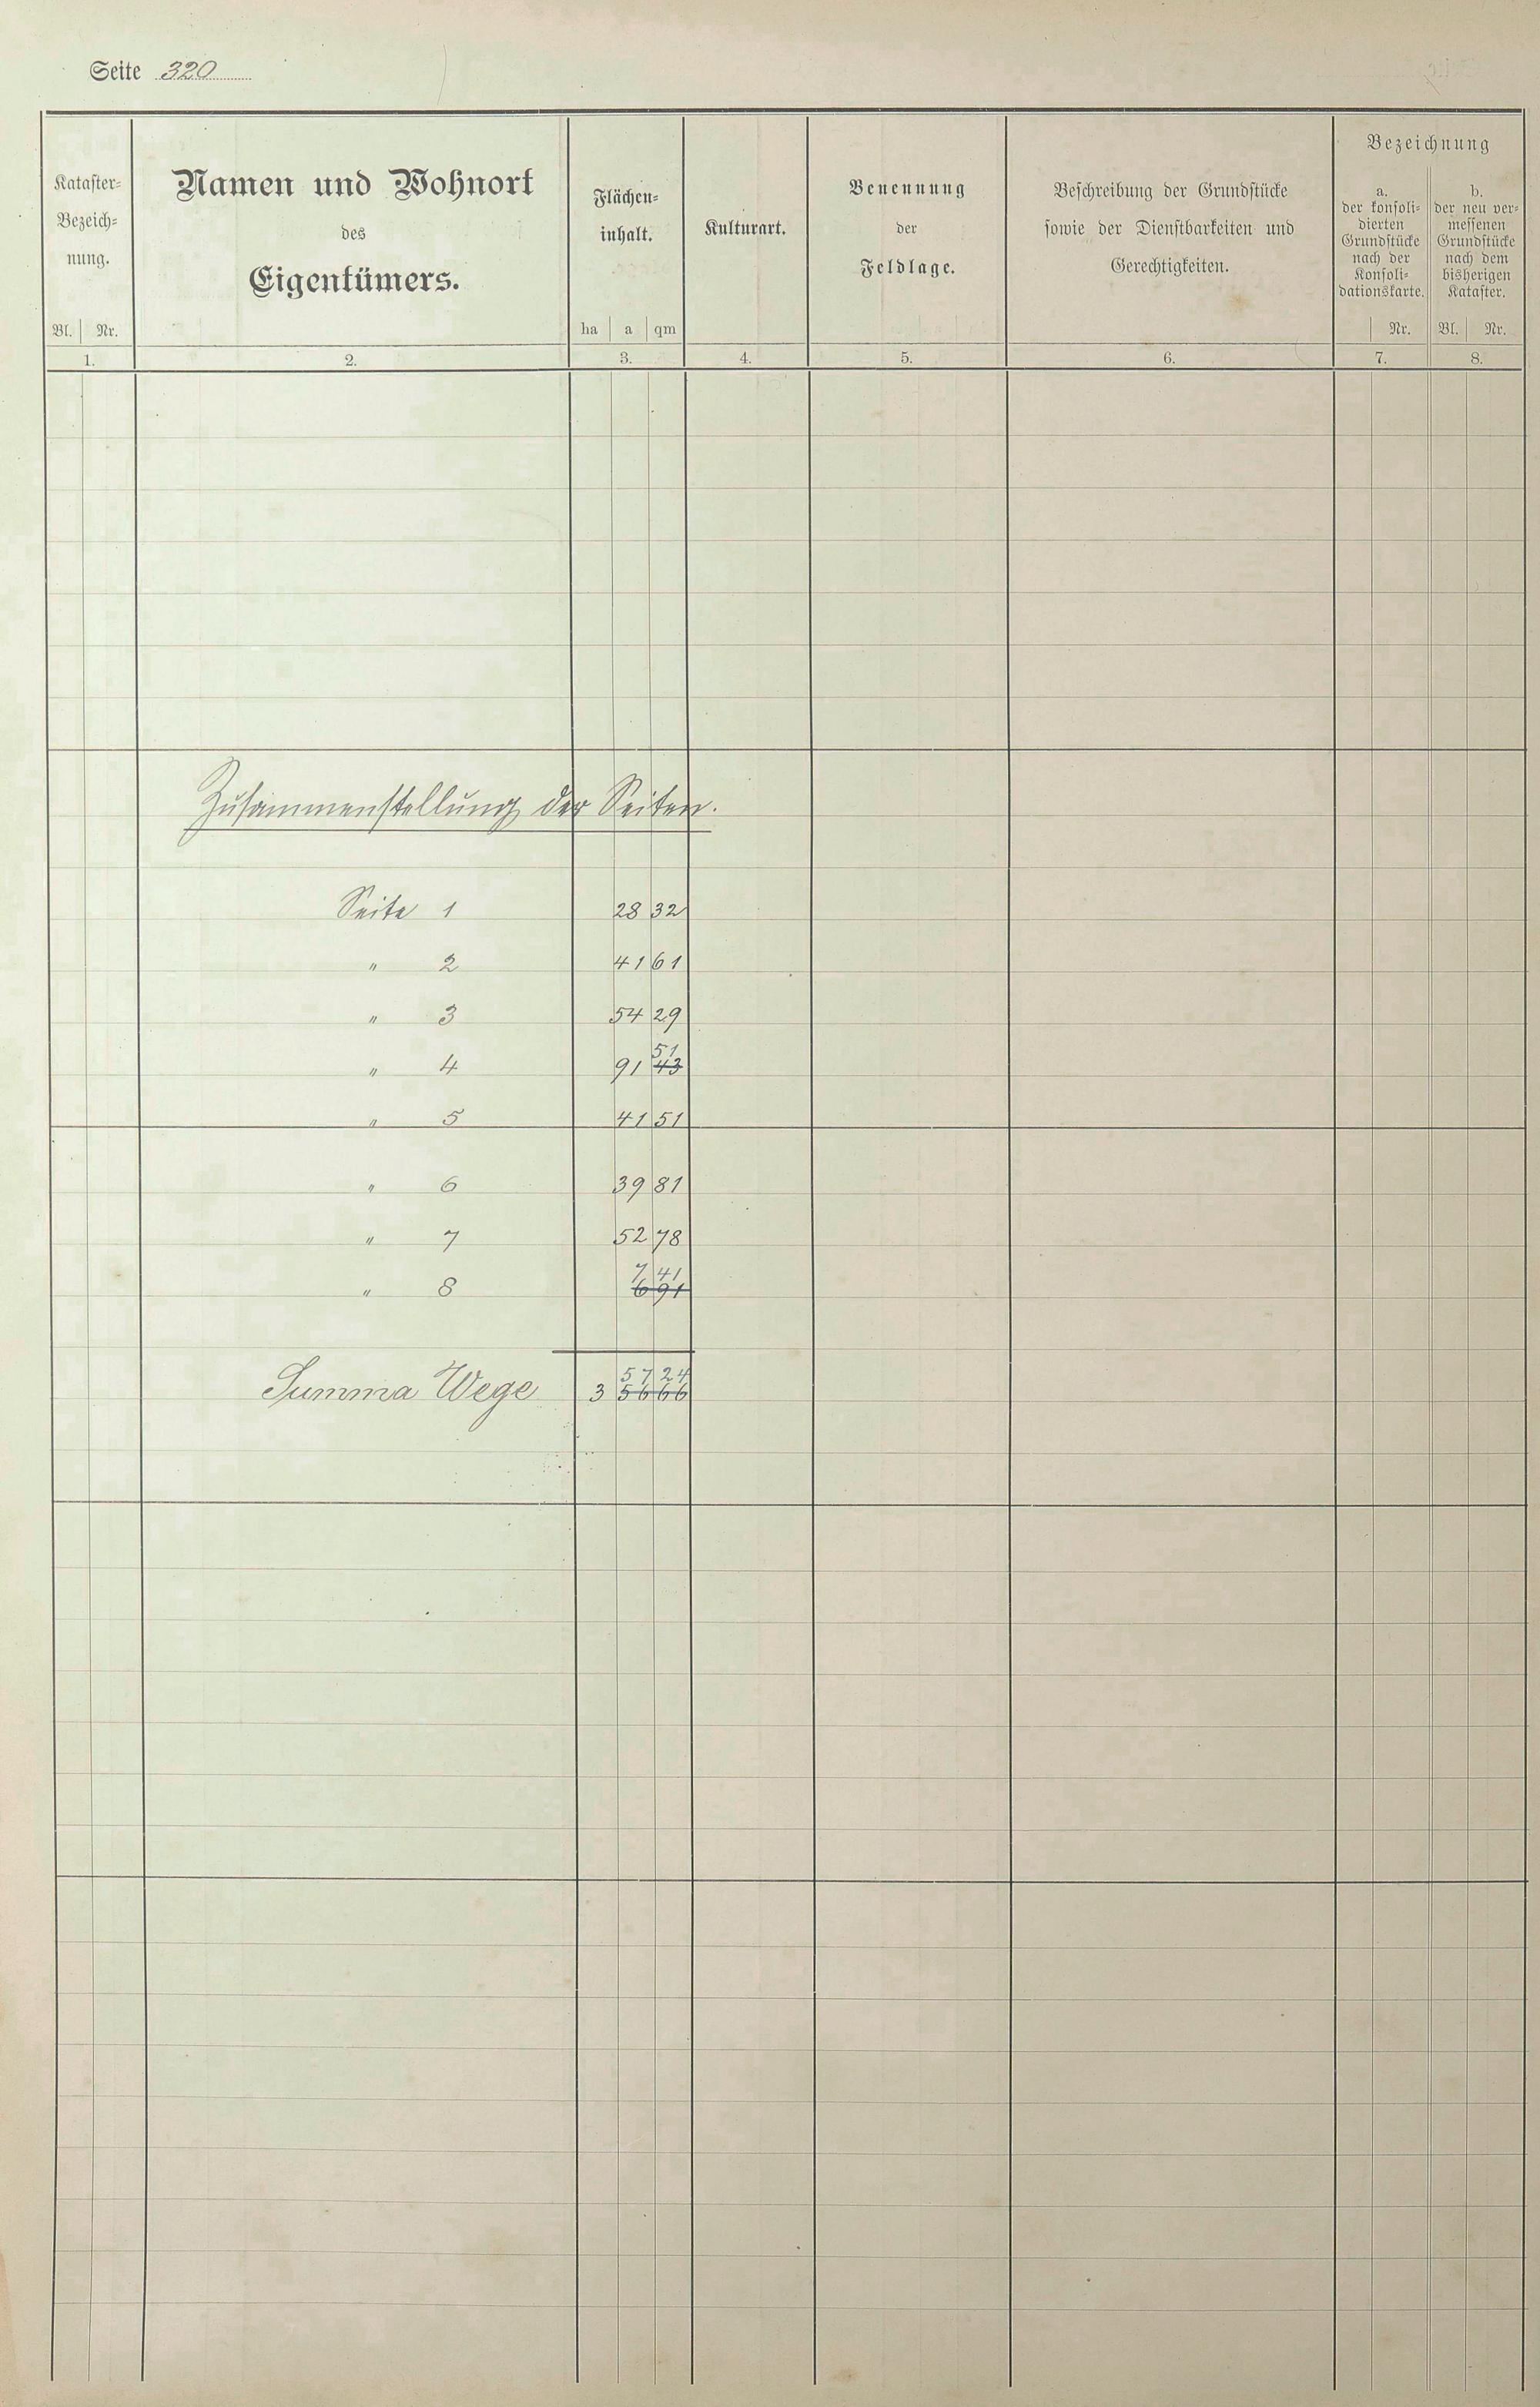 Seite 320
Kataster-
Bezeich-
nung.
Bl. Nr.
1.
Namen und Wohnort
des
Eigentümers.
2.
Flächen-
inhalt.
ha a qm
3.
Kulturart.
4.
Benennung
der
Feldlage.
5.
Beschreibung der Grundstücke
sowie der Dienstbarkeiten und
Gerechtigkeiten.
6.
Bezeichnung
a.
der konsoli-
dierten
Grundstücke
nach der
Konsoli-
dationskarte.
Nr.
7.
b.
der neu ver-
messenen
Grundstücke
nach dem
bisherigen
Kataster.
Bl. Nr.
8.
Zusammenstellung der Seiten.
Seite 1 28 32
" 2 41 61
" 3 54 29
51
" 4 91 43
" 5 41 51
" 6 39 81
" 7 52 78
7 41
" 8 6 91
57 24
Summa Wege 3 56 66